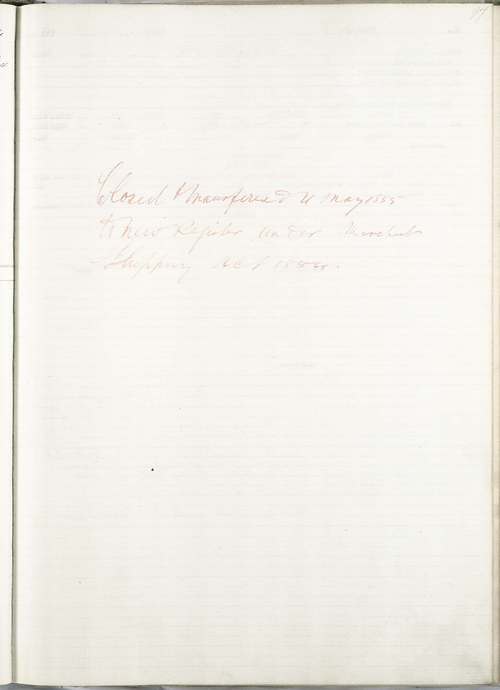 Closed & Transferred 21 May 1855
to new Register under Merchant
Shipping Act 1854.